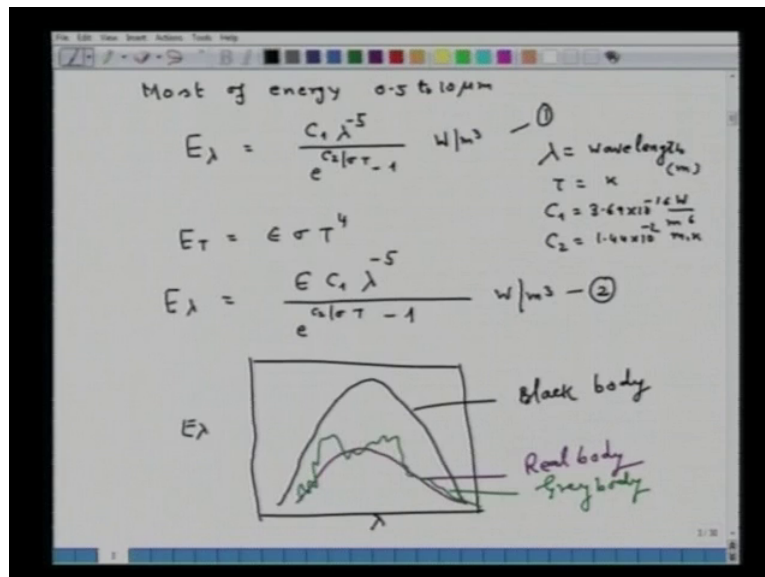 File Edit View Insert Actions Tools Help
Most of energy 0.5 to 10 μm
Eλ = C₁ λ⁻⁵ / e^(C₂/σT) - 1 W/m³ - ①
λ = wavelength (m)
T = K
C₁ = 3.67×10⁻¹⁶ W/m⁶
C₂ = 1.44×10⁻² m.K
E_T = ϵ σ T⁴
Eλ = ϵ C₁ λ⁻⁵ / e^(C₂/σT) - 1 W/m³ - ②
Black body
Eλ
Real body
Grey body
λ